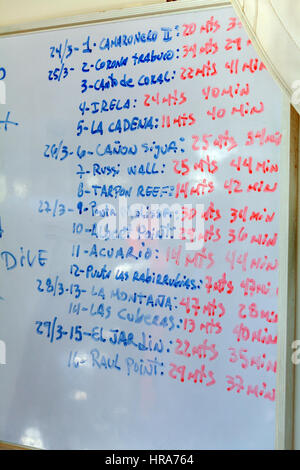 24/3- 1- CAMARONERO II: 20 mts 36 min
25/3- 2- Corona : 34 mts 29 min
3- Canto de CORAL: 22 mts 41 min
4- IRELA: 24 mts 40 min
5- LA CADENA: 11 mts 40 min
26/3- 6- CAÑON SIGUA: 25 mts 34 min
7- Russi WALL: 25 mts 44 min
8- TARPON REEF: 14 mts 42 min
9- 30 mts 34 min
10- POINT: 36 min
DIVE
11- ACUARIO: 14 mts 44 min
12- Punta LAS RABIRRUBIAS: 7 mts
28/3- 13- LA MONTAÑA: 47 mts 28 min
14- LAS CUBERAS: 13 mts 40 min
29/3- 15- EL JARDIN: 22 mts 35 min
16- RAUL POINT: 29 mts 37 min
alamy stock photo
www.alamy.com
HRA764